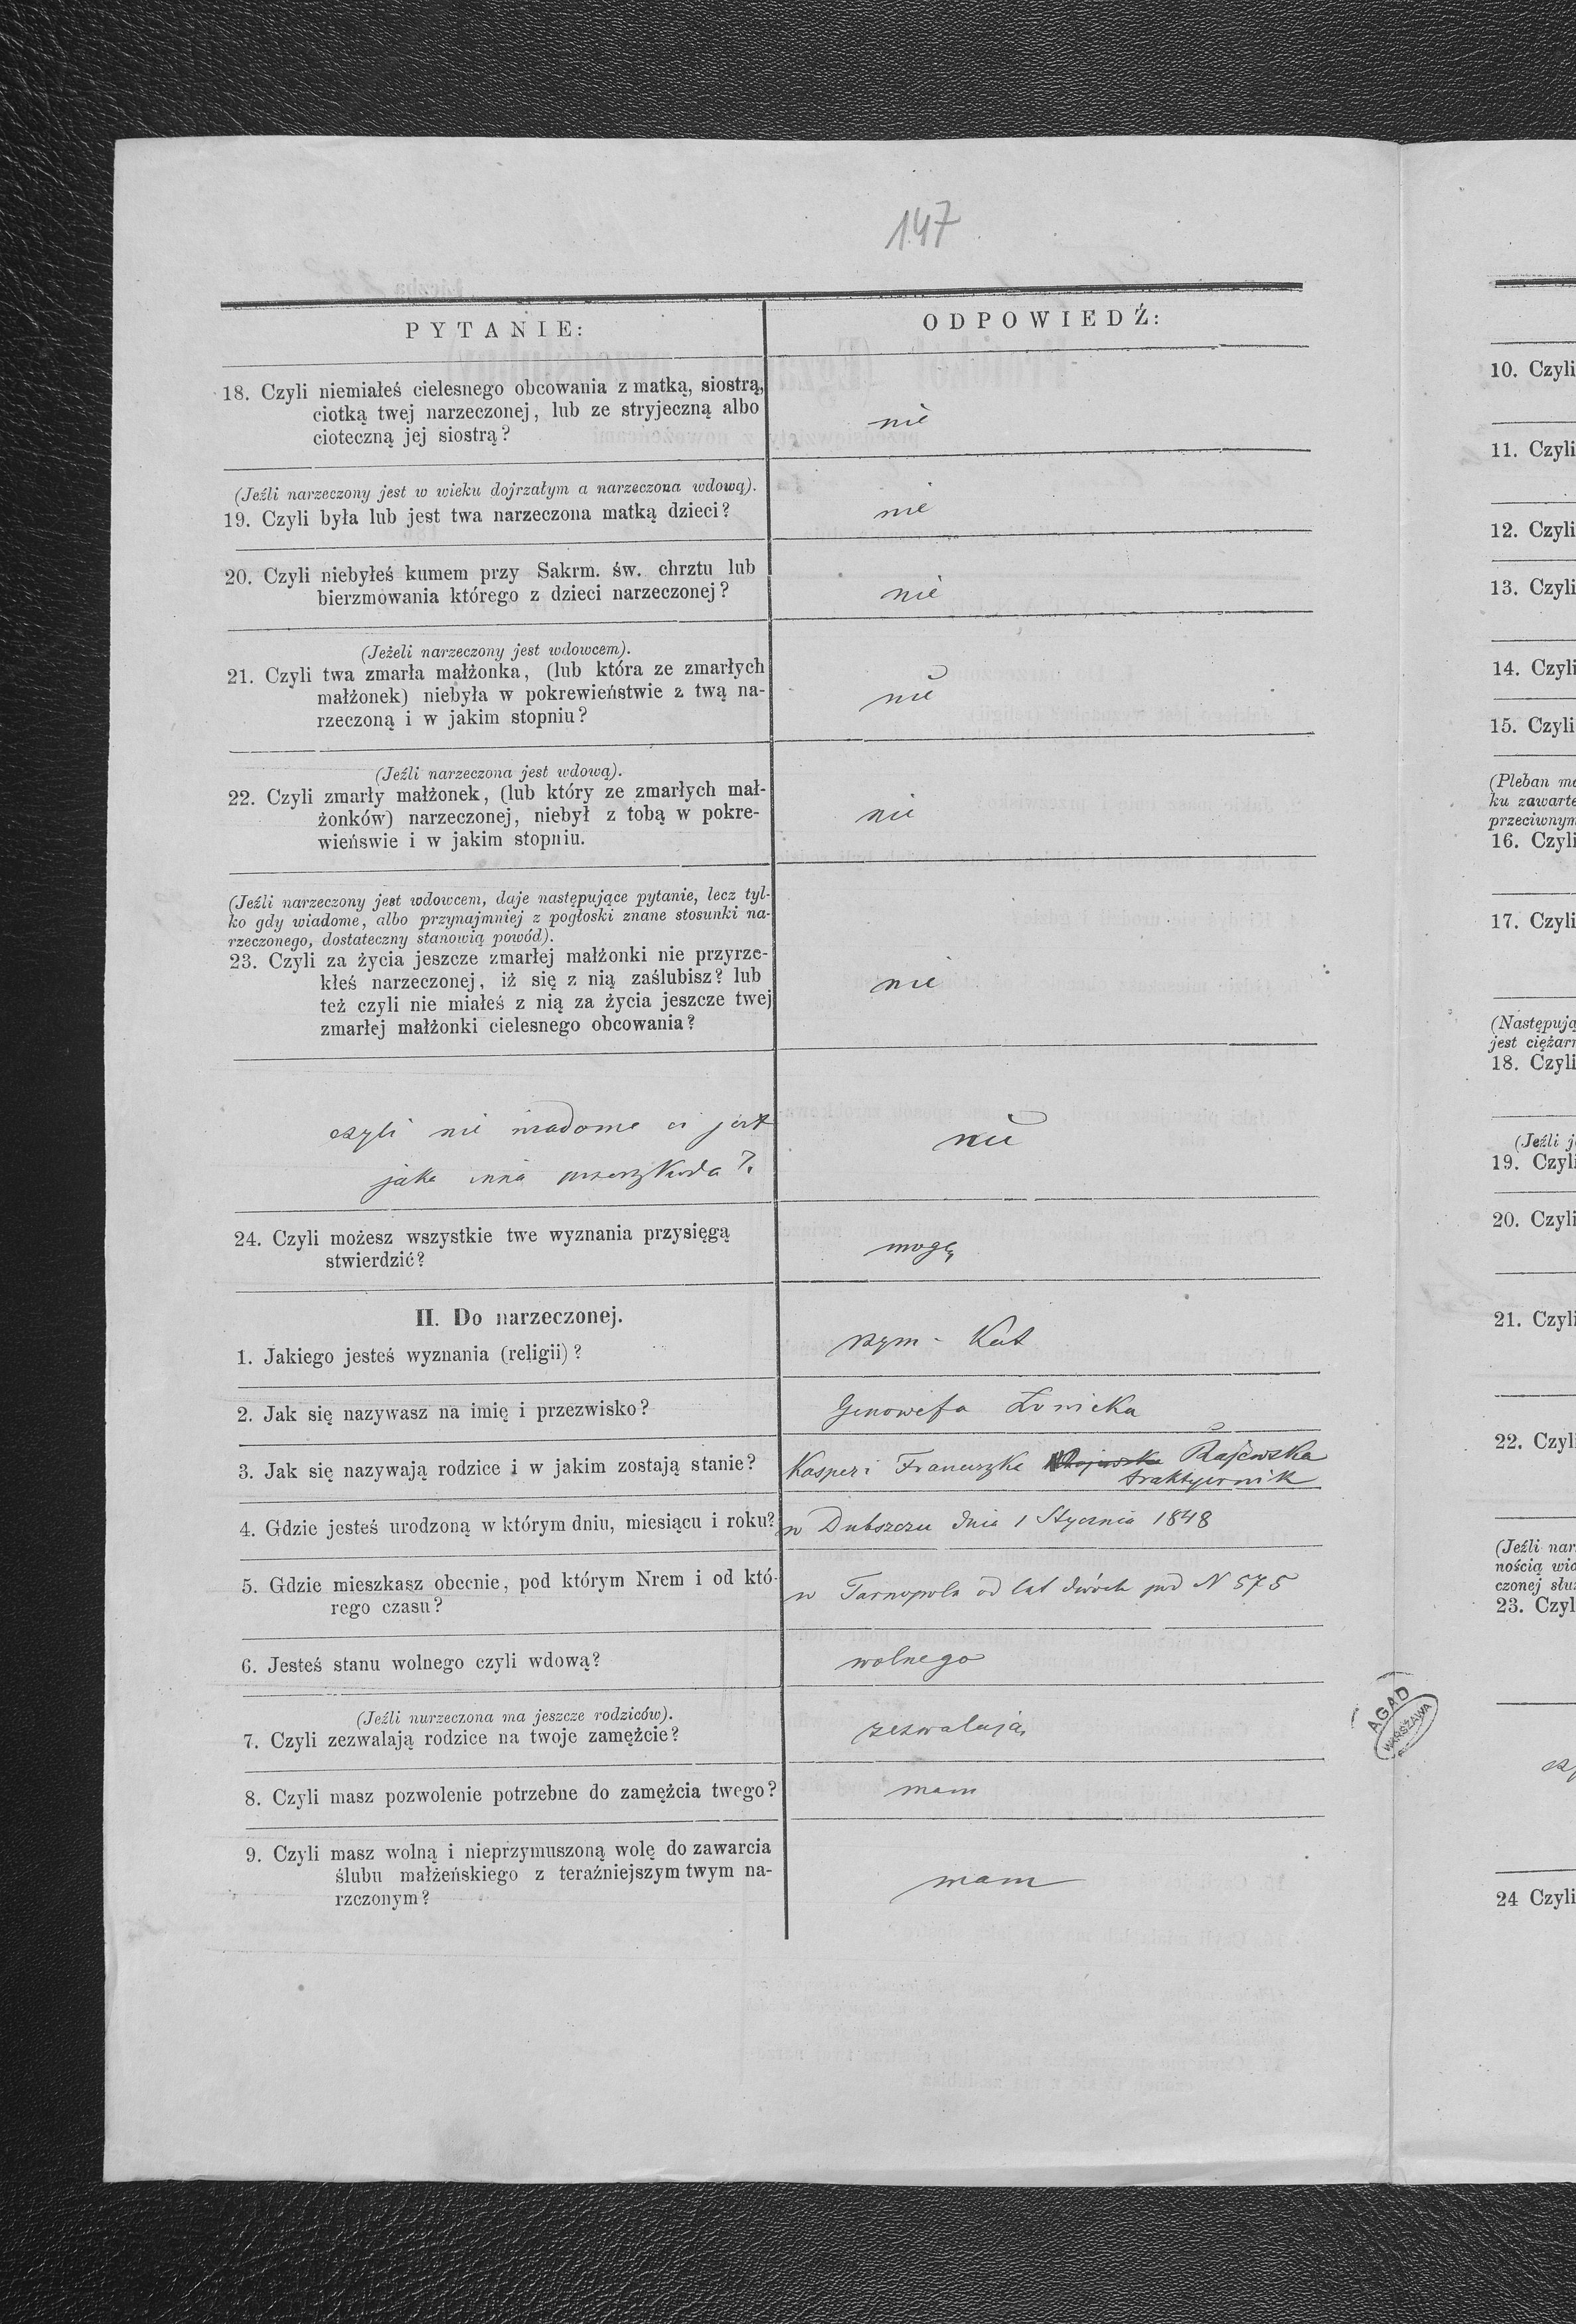 147
PYTANIE:
ODPOWIEDŹ:
18. Czyli niemiałeś cielesnego obcowania z matką, siostrą,
ciotką twej narzeczonej, lub ze stryjeczną albo
cioteczną jej siostrą?
nie
(Jeźli narzeczony jest w wieku dojrzałym a narzeczona wdową).
19. Czyli była lub jest twa narzeczona matką dzieci?
nie
20. Czyli niebyłeś kumem przy Sakrm. św. chrztu lub
bierzmowania którego z dzieci narzeczonej?
nie
(Jeżeli narzeczony jest wdowcem).
21. Czyli twa zmarła małżonka, (lub która ze zmarłych
małżonek) niebyła w pokrewieństwie z twą na-
rzeczoną i w jakim stopniu?
nie
(Jeźli narzeczona jest wdową).
22. Czyli zmarły małżonek, (lub który ze zmarłych mał-
żonków) narzeczonej, niebył z tobą w pokre-
wieńswie i w jakim stopniu.
nie
(Jeźli narzeczony jest wdowcem, daje następujące pytanie, lecz tyl-
ko gdy wiadome, albo przynajmniej z pogłoski znane stosunki na-
rzeczonego, dostateczny stanowią powód).
23. Czyli za życia jeszcze zmarłej małżonki nie przyrze-
kłeś narzeczonej, iż się z nią zaślubisz? lub
też czyli nie miałeś z nią za życia jeszcze twej
zmarłej małżonki cielesnego obcowania?
nie
czyli nie wiadome ci jest
jaka inna przeszkoda?
nie
24. Czyli możesz wszystkie twe wyznania przysięgą
stwierdzić?
mogę
II. Do narzeczonej.
1. Jakiego jesteś wyznania (religii)?
rzym - Kat
2. Jak się nazywasz na imię i przezwisko?
Genowefa
3. Jak się nazywają rodzice i w jakim zostają stanie?
Kasper i Franciszka Rajewska
traktyernik
4. Gdzie jesteś urodzoną w którym dniu, miesiącu i roku?
w Dubszczu dnia 1 Stycznia 1848
5. Gdzie mieszkasz obecnie, pod którym Nrem i od któ-
rego czasu?
w Tarnopolu od lat dwóch pod N 575
6. Jesteś stanu wolnego czyli wdową?
wolnego
(Jeźli nurzeczona ma jeszcze rodziców).
7. Czyli zezwalają rodzice na twoje zamężcie?
zezwalają
8. Czyli masz pozwolenie potrzebne do zamężcia twego?
mam
9. Czyli masz wolną i nieprzymuszoną wolę do zawarcia
ślubu małżeńskiego z teraźniejszym twym na-
rzczonym?
mam
AGAD
WARSZAWA
10. Czyli
11. Czyli
12. Czyli
13. Czyli
14. Czyli
15. Czyli
(Pleban
ku zawarte
przeciwnym
16. Czyli
17. Czyli
(Następują
jest ciężarn
18. Czyli
(Jeźli j
19. Czyli
20. Czyli
21. Czyli
22. Czyli
(Jeźli nar
nością
czonej
23. Czyl
24 Czyli